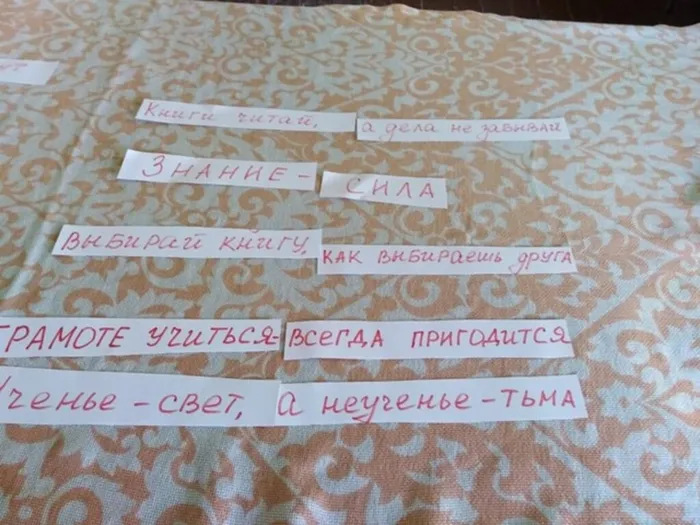 Книги читай, а дела не забывай
ЗНАНИЕ - СИЛА
ВЫБИРАЙ КНИГУ, КАК ВЫБИРАЕШЬ ДРУГА
ГРАМОТЕ УЧИТЬСЯ - ВСЕГДА ПРИГОДИТСЯ
Ученье - свет, а неученье - тьма